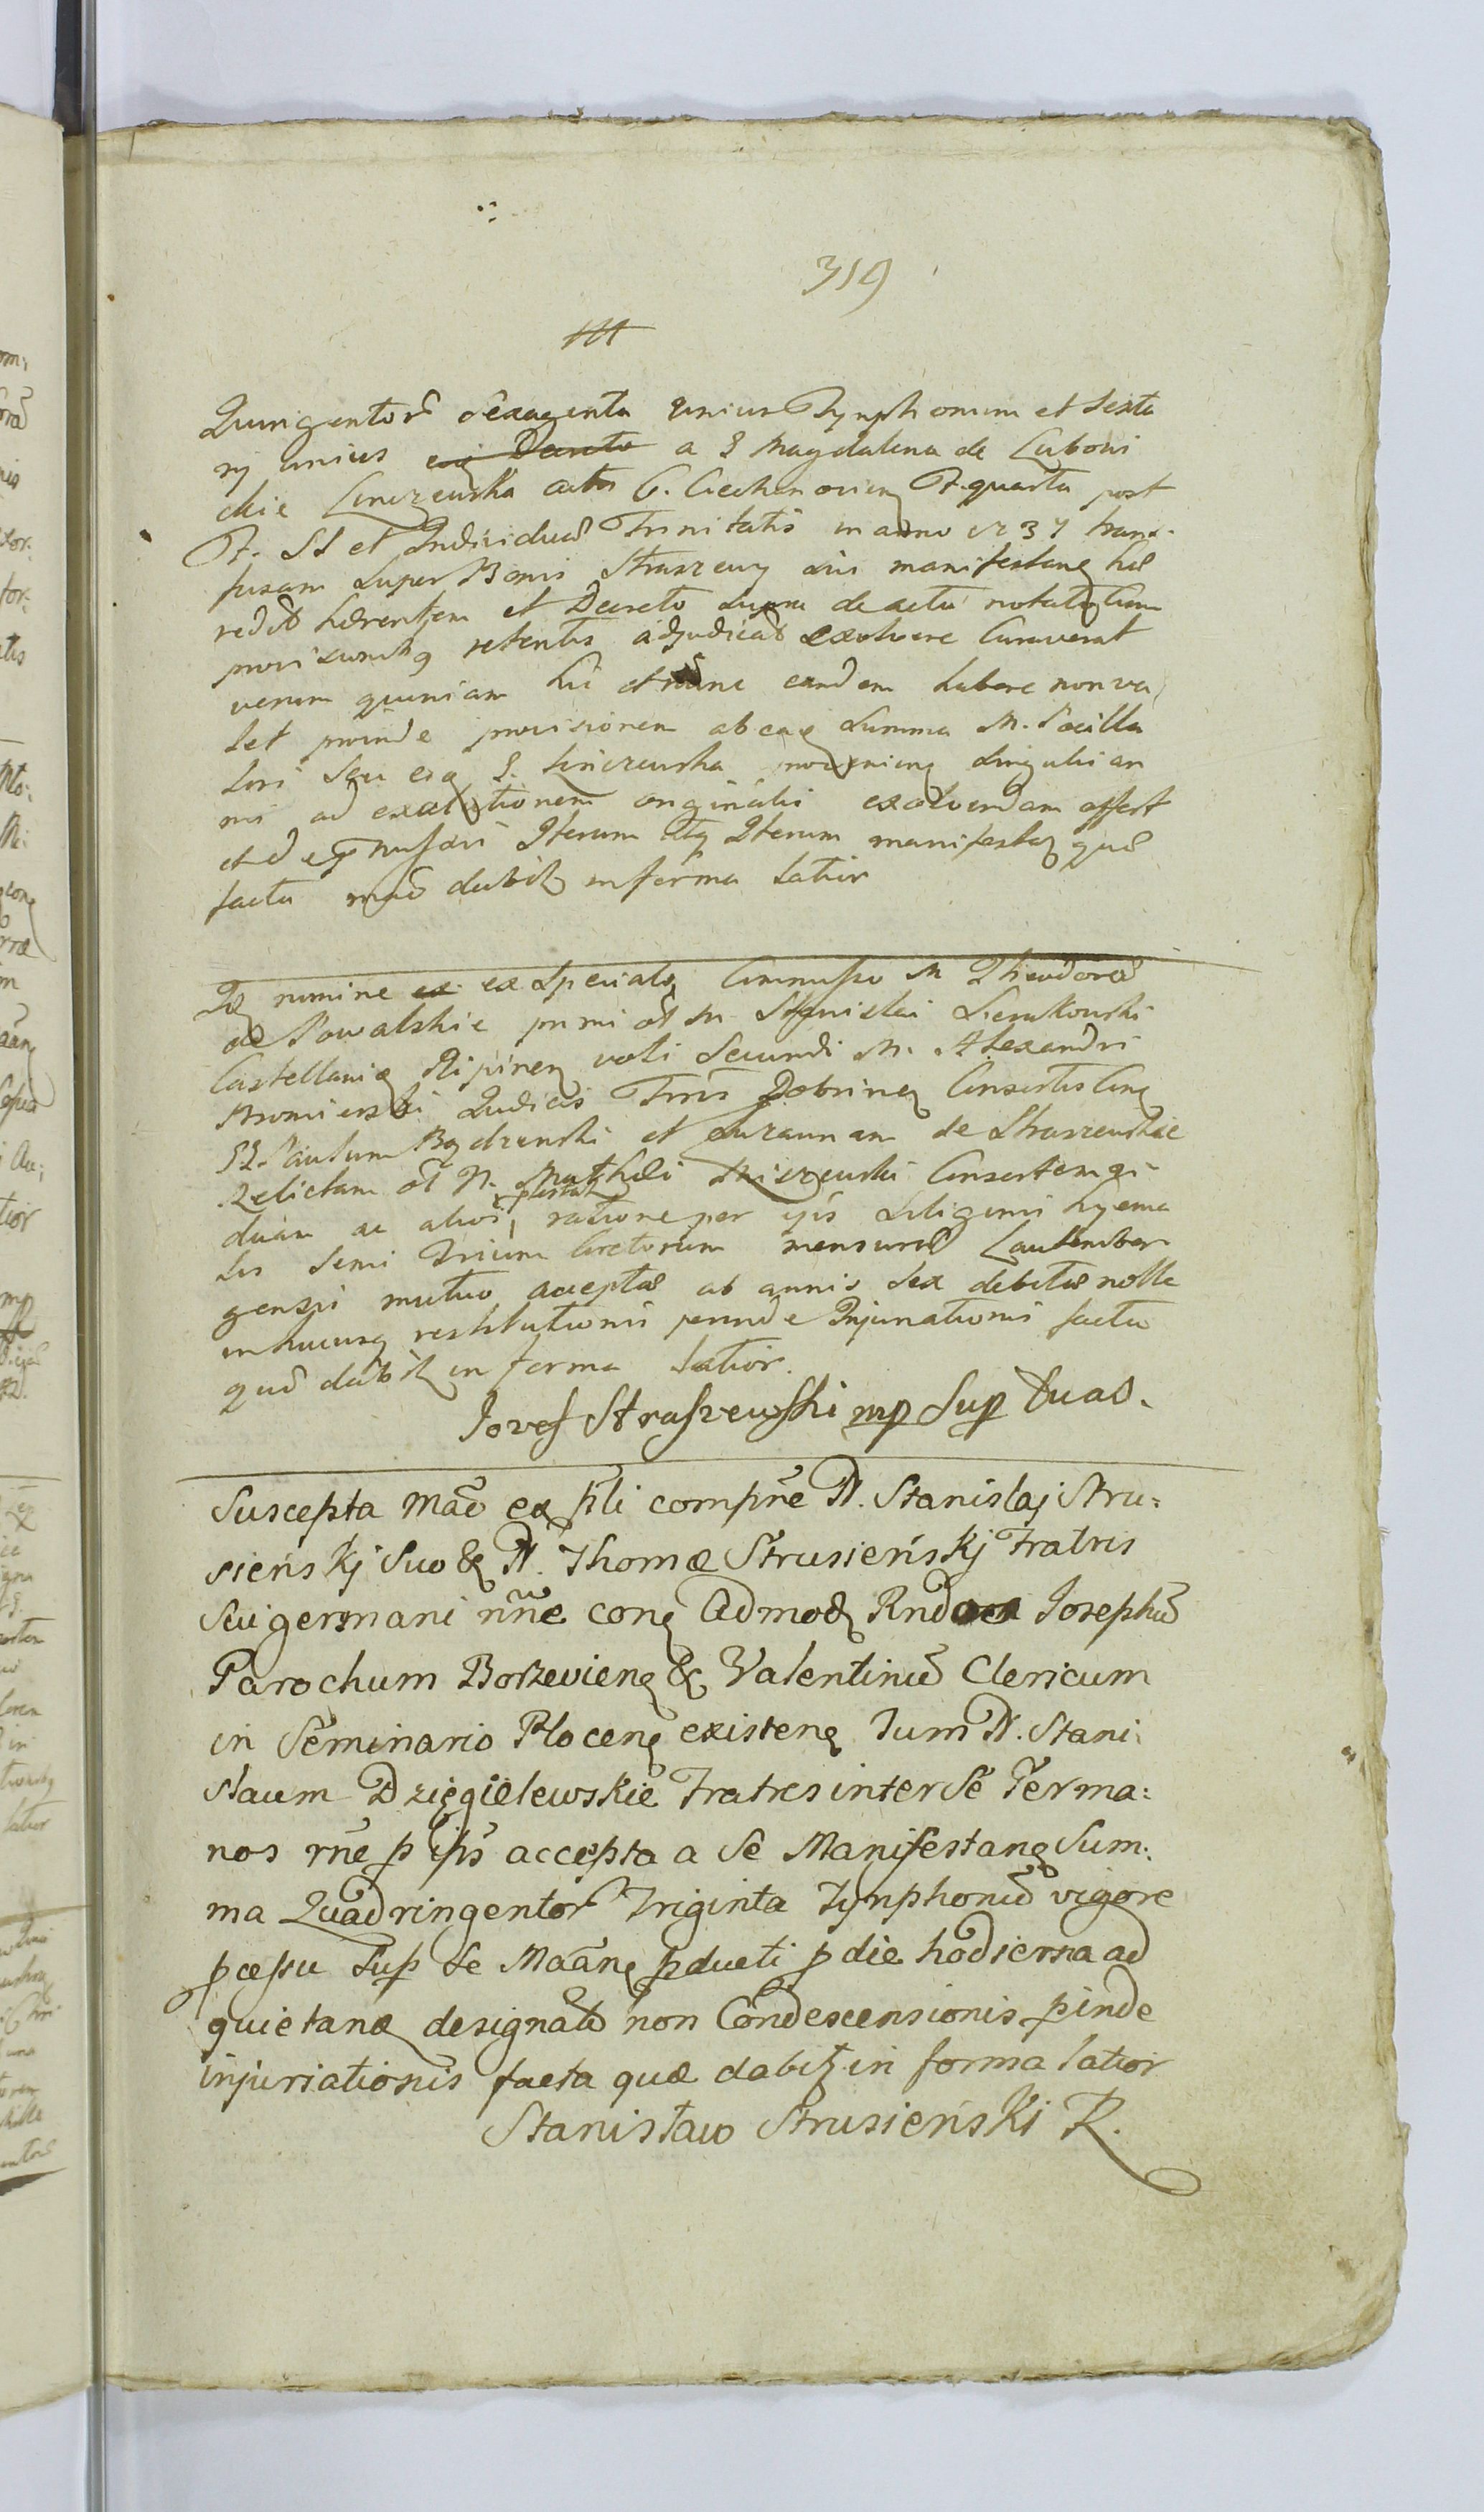 319
Quingentor sexagenta unius Tynphonum et sexta
rij unius eiq Decreto a G Magdalena de Luboni
ckie Liniczewska actis C. Ciechanoviens F. quarta post
F. SS et Individuae Trinitatis in anno 1737 trans-
fusam super Bonis Straszewy sui manifestans hae
redit haerentem et Decreto supra de actu notato cum
provisionibq retentis adjudicat exolvere curaverat
verum quoniam hic et nunc eandem habere non va
let proinde provisionem ab eaq summa M. Pocilla
tori seu eiq G. Liniczewska provenieng singulis an
nis ad exolutionem originalis exolvendam offert
et d Iterum atq Iterum manifestat quae
facta mao dabit in forma latior
Idq nomine ex ex speciali Commisso M Theodorae
de Kowalskie primi ol M. Stanislai Sierakowski
Castellani Ripinen voti secundi M. Alexandri
Judicis Trris Dobrinen Consortis cong
GG. Paulum Bądzenski et Zuzannam de Straszewskie
relictam ol N. Mathaei Miszewski Consortem qi
duam ac alios, ratione per ejs siliginis hyema
lis semi Trium Coretorum mensurae Lautembur
gensis mutuo acceptae ab annis sex debitae nolle
in hucusq restitutionis proinde Injuriationis facta
quae dabit in forma latior.
Jozef Straszewski mp Sup Duas.
Suscepta Mao ex pli compne N. Stanislaj Stru=
sieńskj Suo & N. Thomae Strusieńskj Fratris
Sui germani nne cong Admod Rnd Josephu
Parochum Borzevieng & Valentinu Clericum
in Seminario Ploceng existeng Tum N. Stani
slaum Dzięgielewskie Fratres inter Se Germa=
nos rne p ips accepta a Se Manifestang Sum=
ma Quadringentor Triginta Tynphonu vigore
pcessu Sup Se Maang pducti p die hodierna ad
quietang designato non Condescensionis pinde
injuriationis facta quae dabit in forma latior
Stanisław Strusieński R.